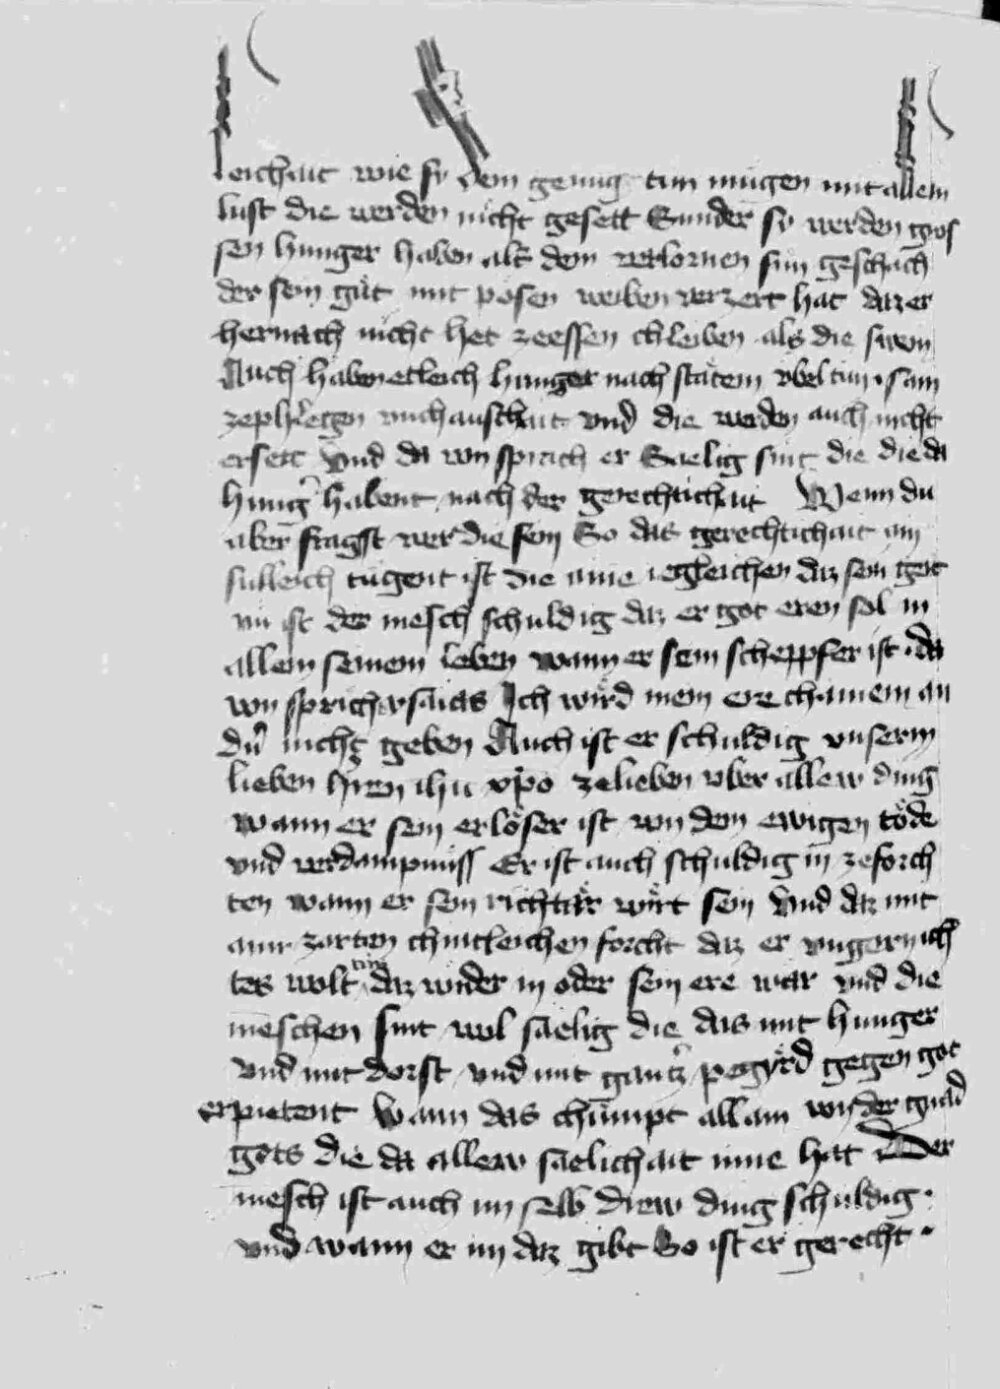 leichait wie sy dem genug tun mugen mit allem
lust die werden nicht gesett Sunder sy werden gros
sen hunger haben als dem verlornen sun geschach
der sein gůt mit pösen weiben verzert hat daz er
hernach nicht het zeessen chleiben als die swein
Auch haben etleich hunger nach stätem vbel tun sam
vnchauschait vnd die werden auch nicht
ersett Vnd da von sprach er Saelig sint die die da
hung͛ habent nach der gerechtichait Wenn du
aber fragst wer die sein So das gerechtichait ain
sulleich tugent ist die aine iegleichen daz sein geit
nu ist der mesch schuldig daz er got eren sol in
allem seinem leben wann er sein schepfer ist da
von sprich ysaias Ich wird mein ere chainem an
dn͛ nicht geben Auch ist er schuldig vnserm
lieben hren ihu xpo zelieben vber allew ding
wann er sein erlöser ist von dem ewigen töde
vnd verdampnuss Er ist auch schuldig in zeforch
ten wann er sein richtär wirt sein Vnd daz mit
ainr zarten chintleichen forcht daz er vngern ich
tes wolt tun daz wider in oder sein ere wär vnd die
meschen sint wol saelig die das mit hunger
vnd mit dorst vnd mit gantz͛ pegird gegen got
erpietent Wann das chumpt allain von der gnad
gots die da allew saelichait inne hat Der
mesch ist auch im selb drew ding schuldig
vnd wann er im daz gibt So ist er gerecht